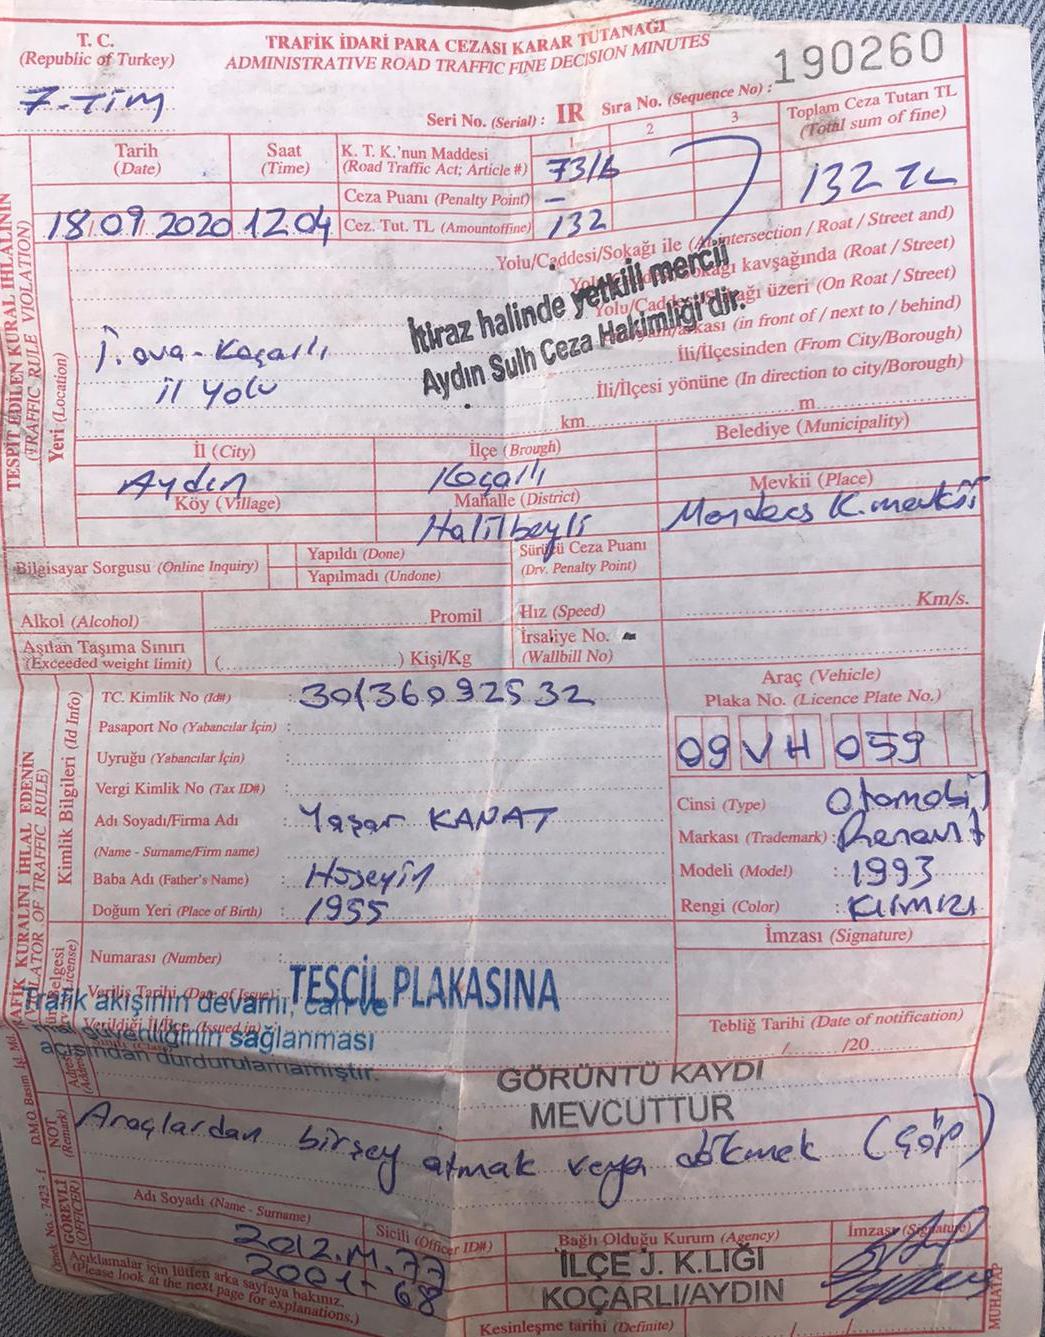 T. C.
(Republic of Turkey)
7-TİM
TRAFİK İDARİ PARA CEZASI KARAR TUTANAĞI
ADMINISTRATIVE ROAD TRAFFIC FINE DECISION MINUTES
Seri No. (Serial) : IR Sıra No. (Sequence No) : 190260
Tarih (Date)
Saat (Time)
K. T. K.'nun Maddesi (Road Traffic Act; Article #)
1 2 3
73/b
Toplam Ceza Tutarı TL (Total sum of fine)
132 TL
Ceza Puanı (Penalty Point) -
18 09 2020 12 04
Cez. Tut. TL (Amountoffine) 132
TESPİT EDİLEN KURAL İHLALİNİN
(TRAFFIC RULE VIOLATION)
Yeri (Location)
Yolu/Caddesi/Sokağı ile (At intersection / Roat / Street and)
kavşağında (Roat / Street)
üzeri (On Roat / Street)
(in front of / next to / behind)
İtiraz halinde yetkili mercii
Aydın Sulh Ceza Hakimliği'dir.
ova-Koçarlı
il yolu
İli/İlçesinden (From City/Borough)
İli/İlçesi yönüne (In direction to city/Borough)
km. m
İl (City)
İlçe (Brough)
Belediye (Municipality)
Aydın
Koçarlı
Köy (Village)
Mahalle (District)
Mevkii (Place)
Halilbeyli
K. mevkii
Bilgisayar Sorgusu (Online Inquiry)
Yapıldı (Done)
Yapılmadı (Undone)
Sürücü Ceza Puanı
(Drv. Penalty Point)
Alkol (Alcohol) Promil
Hız (Speed) Km/s.
Aşılan Taşıma Sınırı
(Exceeded weight limit) (..........) Kişi/Kg
İrsaliye No.
(Wallbill No)
TRAFİK KURALINI İHLAL EDENİN
(VIOLATOR OF TRAFFIC RULE)
Kimlik Bilgileri (Id Info)
TC. Kimlik No (Id#) : 30136092532
Pasaport No (Yabancılar İçin) :
Uyruğu (Yabancılar İçin) :
Vergi Kimlik No (Tax ID#) :
Adı Soyadı/Firma Adı : Yaşar KANAT
(Name - Surname/Firm name)
Baba Adı (Father's Name) : Hüseyin
Doğum Yeri (Place of Birth) : 1955
Araç (Vehicle)
Plaka No. (Licence Plate No.)
09 VH 059
Cinsi (Type) Otomobil
Markası (Trademark) : Renault
Modeli (Model) : 1993
Rengi (Color) : Kırmızı
İmzası (Signature)
Numarası (Number)
Veriliş Tarihi (Date of Issue) :
Verildiği İl/İlçe (Issued in)
TESCİL PLAKASINA
Trafik akışının devamı, can ve
mal güvenliğinin sağlanması
açısından durdurulamamıştır.
Tebliğ Tarihi (Date of notification)
/ /20
GÖRÜNTÜ KAYDI
MEVCUTTUR
NOT
(Remark)
Araçlardan birşey atmak veya dökmek (çöp)
GÖREVLİ
(OFFICER)
Adı Soyadı (Name - Surname)
Sicili (Officer ID#)
Bağlı Olduğu Kurum (Agency)
İmzası (Signature)
2012.M.77
2001-68
İLÇE J. K.LIĞI
KOÇARLI/AYDIN
Açıklamalar için lütfen arka sayfaya bakınız.
(Please look at the next page for explanations.)
Kesinleşme tarihi (Definite) / /
MUHATAP
D.M.O. Basım İşl. Md.
Örnek No. : 7423